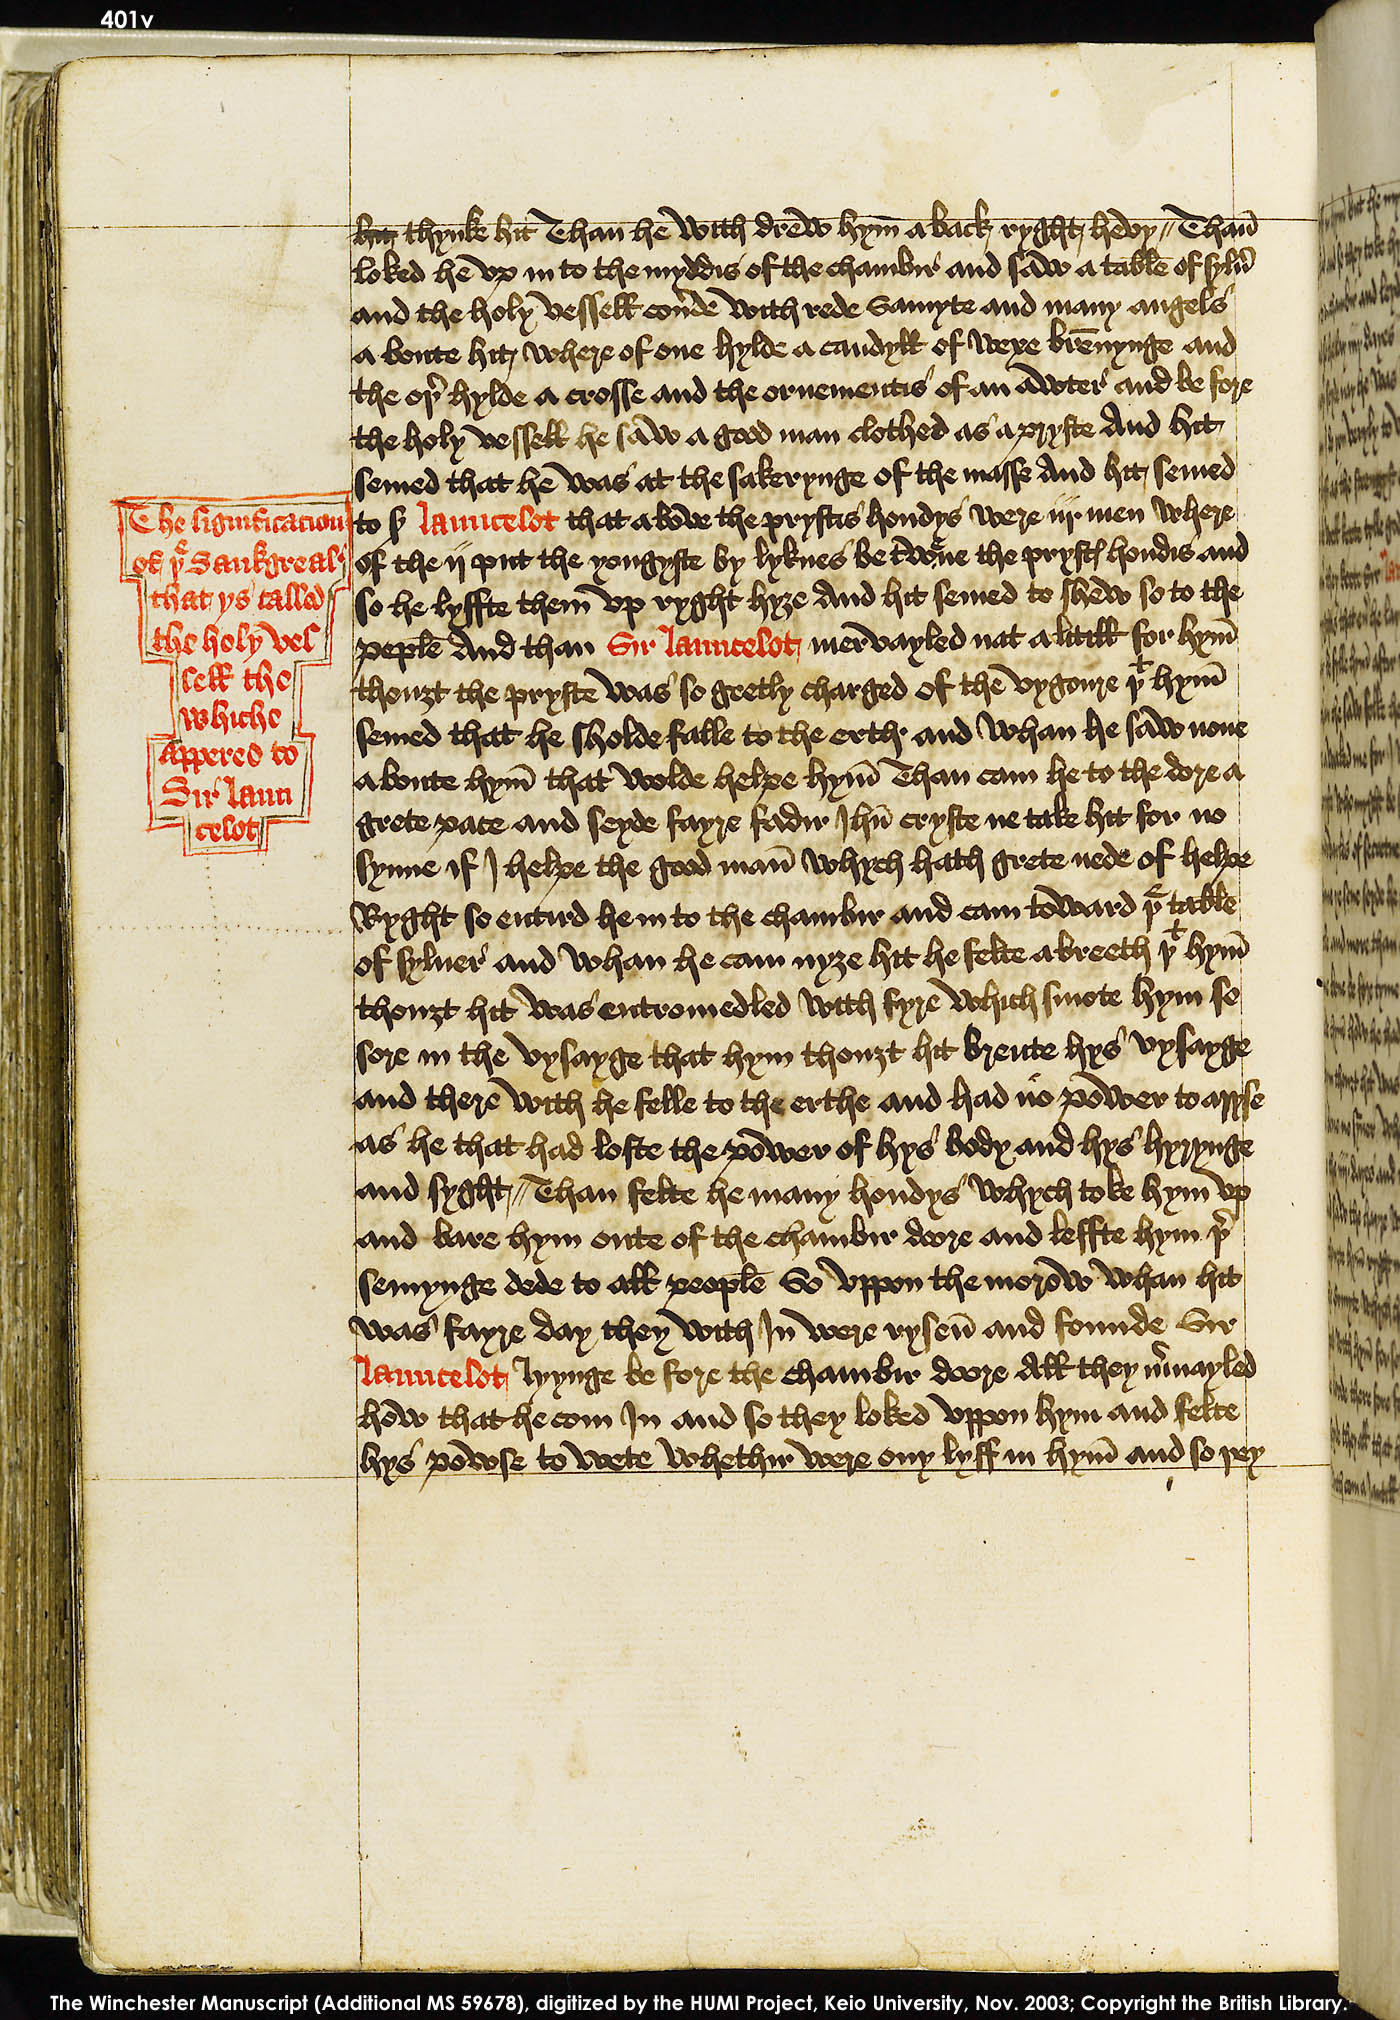 401v
hit thynke hit Than he with drew hym̄ a back ryght hevy // Than̄
loked he vp in to the myddis of the chambir and saw a table of sylu̓
and the holy vessell cou̓de with rede samyte and many angels
a boute hit where of one hylde a candyll of wexe brēnynge and
the oþ̓ hylde a crosse and the ornementis of an awter and be fore
the holy vessell he saw a good man clothed as a pryste And hit
semed that he was at the sakerynge of the masse And hit semed
to sʳ Launcelot that a bove the prystis hondys were iij men where
of the ij put the yongyste by lyknes be twene the prystʒ hondis and
so he lyffte them̄ vp ryght hyȝe And hit semed to shew so to the
peple And than Sir Launcelot mervayled nat a litill for hym̄
thouȝt the pryste was so gretly charged of the vygoure yᵗ hym̄
semed that he sholde falle to the erth and whan he saw none
a boute hym̄ that wolde helpe hym̄ Than cam he to the dore a
grete pace and seyde fayre fadir Jhū cryste ne take hit for no
synne if J helpe the good man̄ whych hath grete nede of helpe
Ryght so entird he in to the chambir and cam toward yᵉ table
of syluer and whan he cam nyȝe hit he felte a breeth yᵗ hym̄
thouȝt hit was entromedled with fyre which smote hym so
sore in the vysayge that hym thouȝt hit brente hys vysayge
and there with he felle to the erthe and had no power to aryse
as he that had loste the power of hys body and hys hyrynge
and syght // Than felte he many hondys whych toke hym vp
and bare hym oute of the chambir doore and leffte hym þ̓
semynge dede to all people So vppon the morow whan hit
was fayre day they with Jn were rysen̄ and founde Sir
Launcelot lyynge be fore the chambir doore All they m̓uayled
how that he com Jn and so they loked vppon hym and felte
hys powse to wete whethir were ony lyff in hym̄ and so þey
The significacion
of yᵉ Sankgreal
that ys called
the holy ves
sell the
whiche
appered to
Sir Laun
celot
The Winchester Manuscript (Additional MS 59678), digitized by the HUMI Project, Keio University, Nov. 2003; Copyright the British Library.